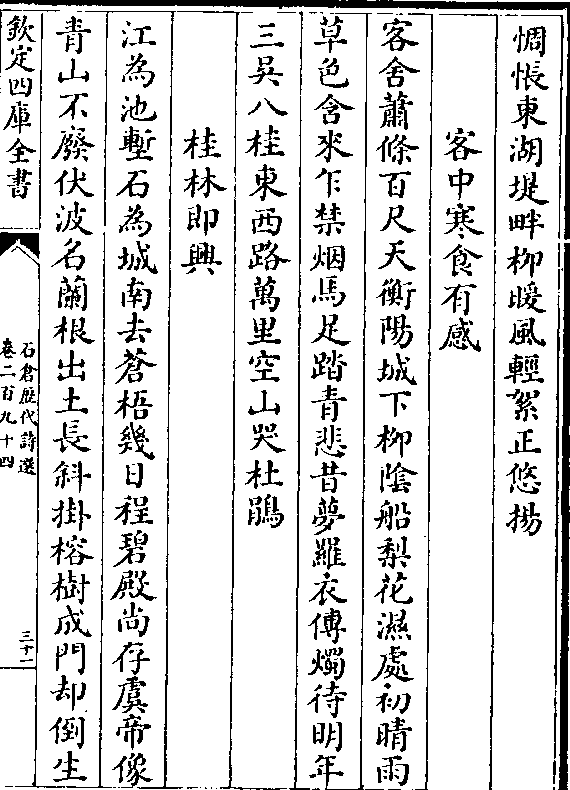 惆悵東湖堤畔柳暖風輕絮正悠揚
客中寒食有感
客舍蕭條百尺天衡陽城下柳陰船梨花濕處初晴雨
草色含來乍禁烟馬足踏青悲昔夢羅衣傅燭待明年
三吳八桂東西路萬里空山哭杜鵑
桂林即興
江為池塹石為城南去蒼梧幾日程碧殿尚存虞帝像
青山不廢伏波名蘭根出土長斜掛榕樹成門却倒生
欽定四庫全書
石倉歷代詩選
卷二百九十四
三十一